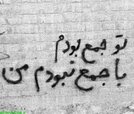 تو جمع بودم
با جمع نبودم من